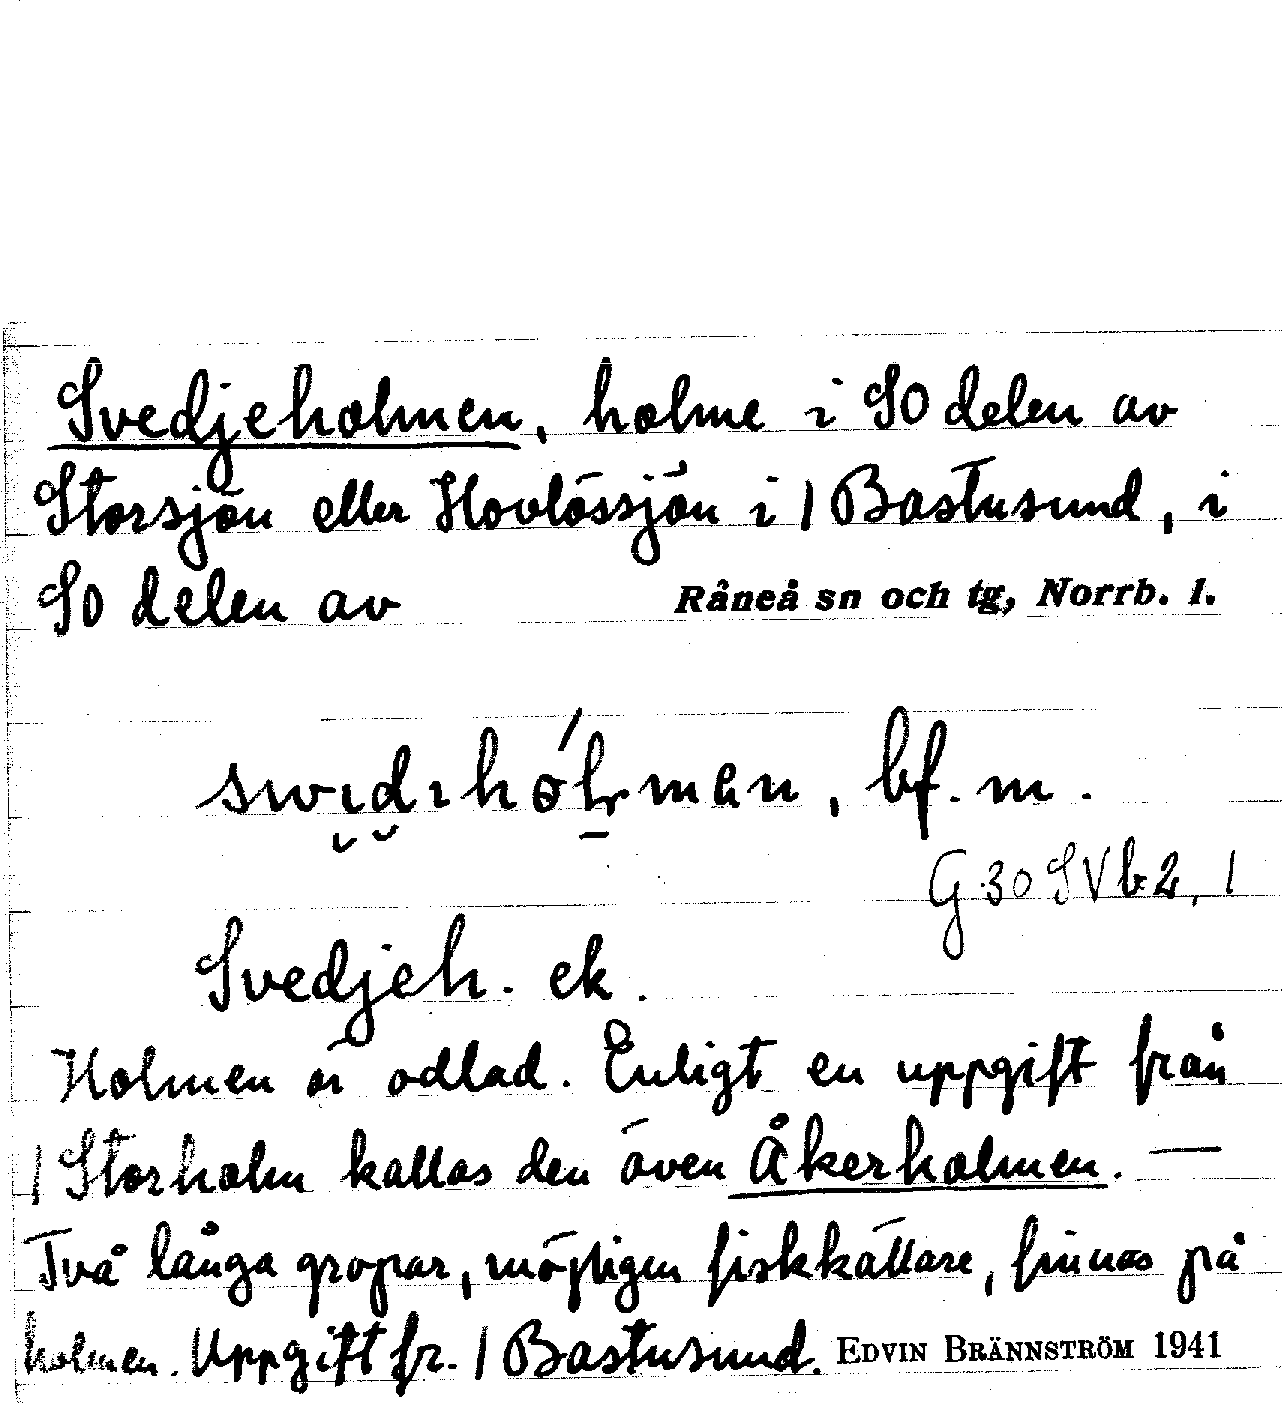 Svedjeholmen, holme i SO delen av
Storsjön eller Hovlössjön i / Bastusund, i
SO delen av Råneå sn och tg, Norrb. l.
bf. m.
G 30 SV b 2, 1
Svedjeh. ek.
Holmen är odlad. Enligt en uppgift från
/ Storholm kallas den även Åkerholmen. —
Två långa gropar, möjligen fiskkällare, finnas på
holmen. Uppgift fr. / Bastusund. EDVIN BRÄNNSTRÖM 1941